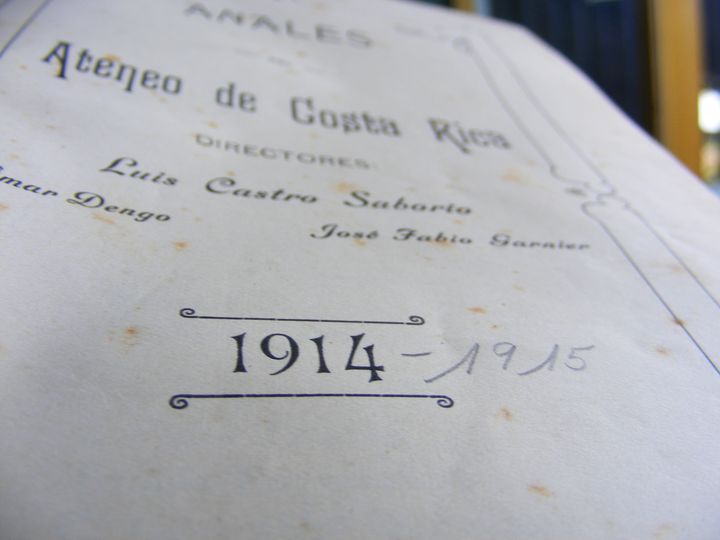 ANALES
Ateneo de Costa Rica
DIRECTORES:
Luis Castro Saborio
Dengo José Fabio Garnier
1914 - 1915